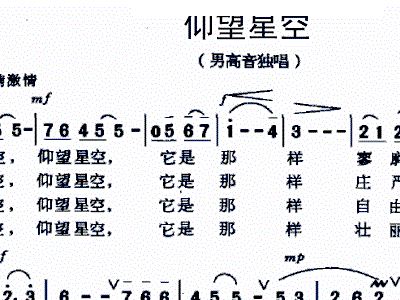 仰望星空
（男高音独唱）
情激情
mf f
5 5 - | 7 6 4 5 5 - | 0 5 6 7 | i - - 4 | 3 - - - | 2 1 2
空， 仰望星空， 它是 那 样 寥
空， 仰望星空， 它是 那 样 庄 严
空， 仰望星空， 它是 那 样 自 由
空， 仰望星空， 它是 那 样 壮 丽
f mp
2. 3 | 6 - - 7 6 6 | 4 5 5 - 5 3 | 2 1 6 2